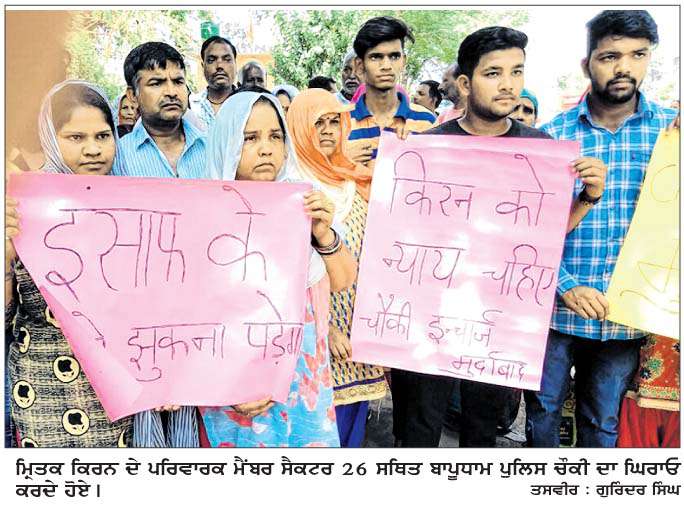 इंसाफ के
झुकना पड़ेगा
किरन को
न्याय चहिए
चौकी इन्चार्ज
मुर्दाबाद
ਮ੍ਰਿਤਕ ਕਿਰਨ ਦੇ ਪਰਿਵਾਰਕ ਮੈਂਬਰ ਸੈਕਟਰ 26 ਸਥਿਤ ਬਾਪੂਧਾਮ ਪੁਲਿਸ ਚੌਕੀ ਦਾ ਘਿਰਾਓ
ਕਰਦੇ ਹੋਏ।
ਤਸਵੀਰ : ਗੁਰਿੰਦਰ ਸਿੰਘ